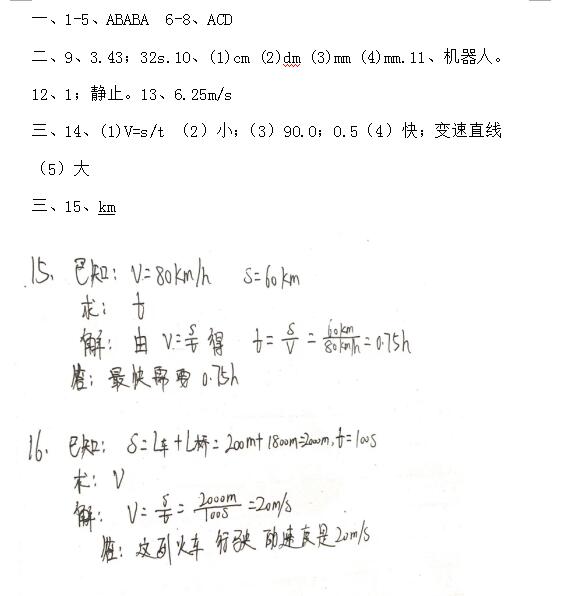 一、1-5、ABABA 6-8、ACD
二、9、3.43；32s.10、(1)cm (2)dm (3)mm (4)mm.11、机器人。
12、1；静止。13、6.25m/s
三、14、(1)V=s/t （2）小；（3）90.0；0.5（4）快；变速直线
（5）大
三、15、km
15、已知：V=80km/h S=60km
求：t
解：由 V=s/t 得 t=s/v=60km/80km/h=0.75h
答：最快需要 0.75h
16、已知：S=L车+L桥=200m+1800m=2000m，t=100s
求：V
解：V=s/t=2000m/100s=20m/s
答：这列火车行驶的速度是20m/s